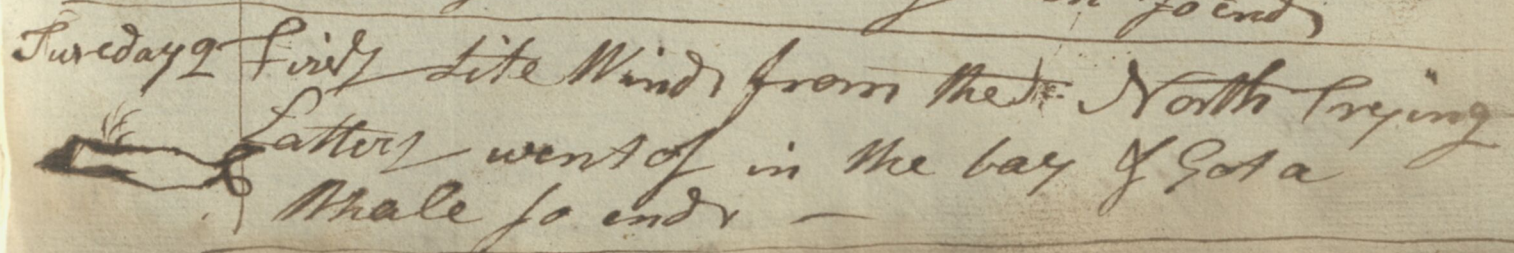 so ends
Tuesday 9 First Lite Winds from the North Trying
Latter went of in the bay & Got a
Whale so ends